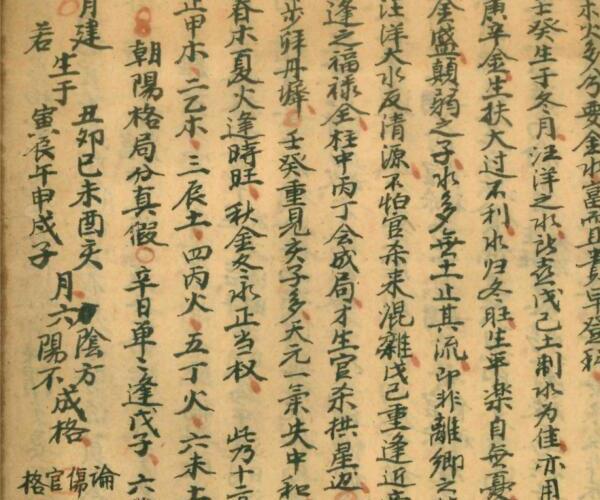 木火多兮要金水富而且貴早登科
壬癸生于冬月汪洋之水欣喜戊己土制水为佳亦用
庚辛金生扶大过不利水归冬旺生平楽自無憂
金盛顛弱之子水多無土止其流即非離鄉之
汪洋大水反清源不怕官杀来混雜戊己重逢近
逢之福禄全柱中丙丁会成局才生官杀拱星辺
步拜丹墀壬癸重見亥子多天元一氣失中和
春木夏火逢時旺秋金冬水正当权此乃十二
正甲木二乙木三辰土四丙火五丁火六未土
朝陽格局分真假辛日单之逢戊子六
月建丑卯巳未酉亥陰方
若生于寅辰午申戌子月六陽不成格
論傷官格